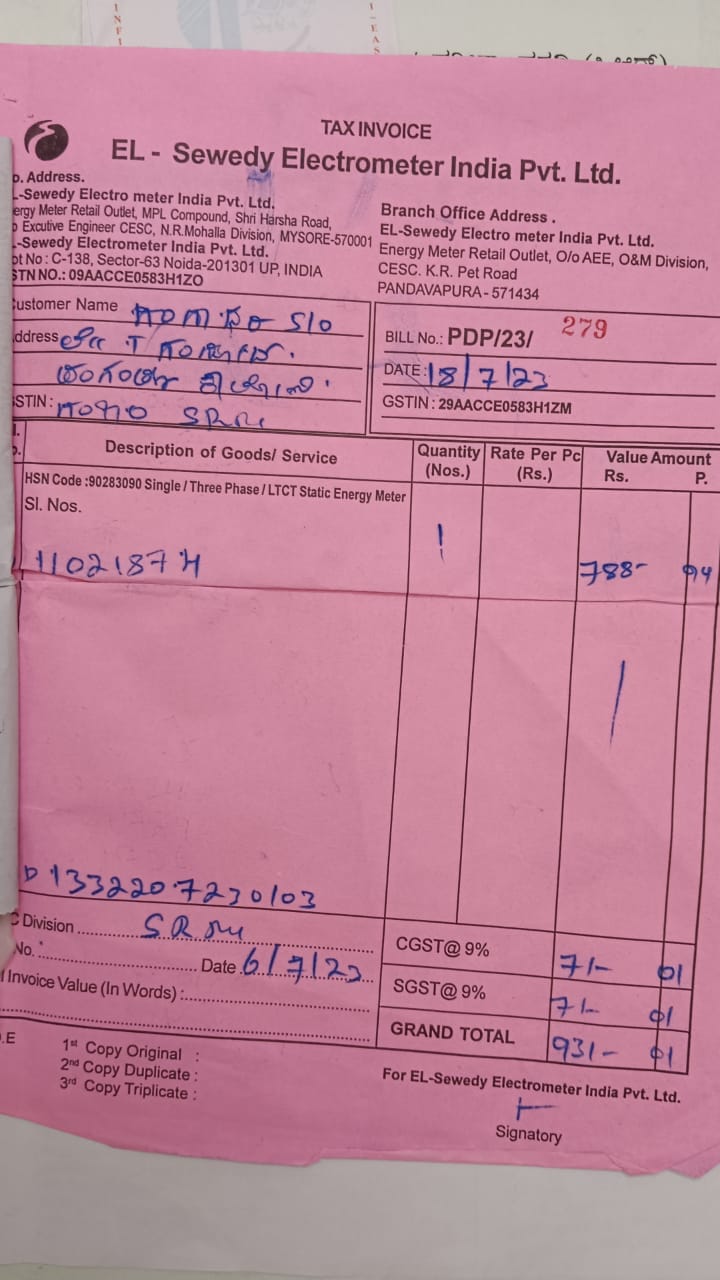 TAX INVOICE
EL - Sewedy Electrometer India Pvt. Ltd.
Address.
-Sewedy Electro meter India Pvt. Ltd.
ergy Meter Retail Outlet, MPL Compound, Shri Harsha Road,
Excutive Engineer CESC, N.R.Mohalla Division, MYSORE-570001
-Sewedy Electrometer India Pvt. Ltd.
ot No : C-138, Sector-63 Noida-201301 UP, INDIA
STN NO.: 09AACCE0583H1ZO
Branch Office Address .
EL-Sewedy Electro meter India Pvt. Ltd.
Energy Meter Retail Outlet, O/o AEE, O&M Division,
CESC. K.R. Pet Road
PANDAVAPURA - 571434
ustomer Name S/o
ddress
STIN :
BILL No.: PDP/23/ 279
DATE : 18/7/23
GSTIN : 29AACCE0583H1ZM
Description of Goods/ Service Quantity (Nos.) Rate Per Pc (Rs.) Value Amount Rs. P.
HSN Code :90283090 Single / Three Phase / LTCT Static Energy Meter
Sl. Nos.
11021874 1 788- 94
1332207230103
Division
No. Date 6/7/23
Invoice Value (In Words) :
CGST@ 9% 71- 01
SGST@ 9% 71- 01
GRAND TOTAL 931- 01
.E
1st Copy Original :
2nd Copy Duplicate :
3rd Copy Triplicate :
For EL-Sewedy Electrometer India Pvt. Ltd.
Signatory